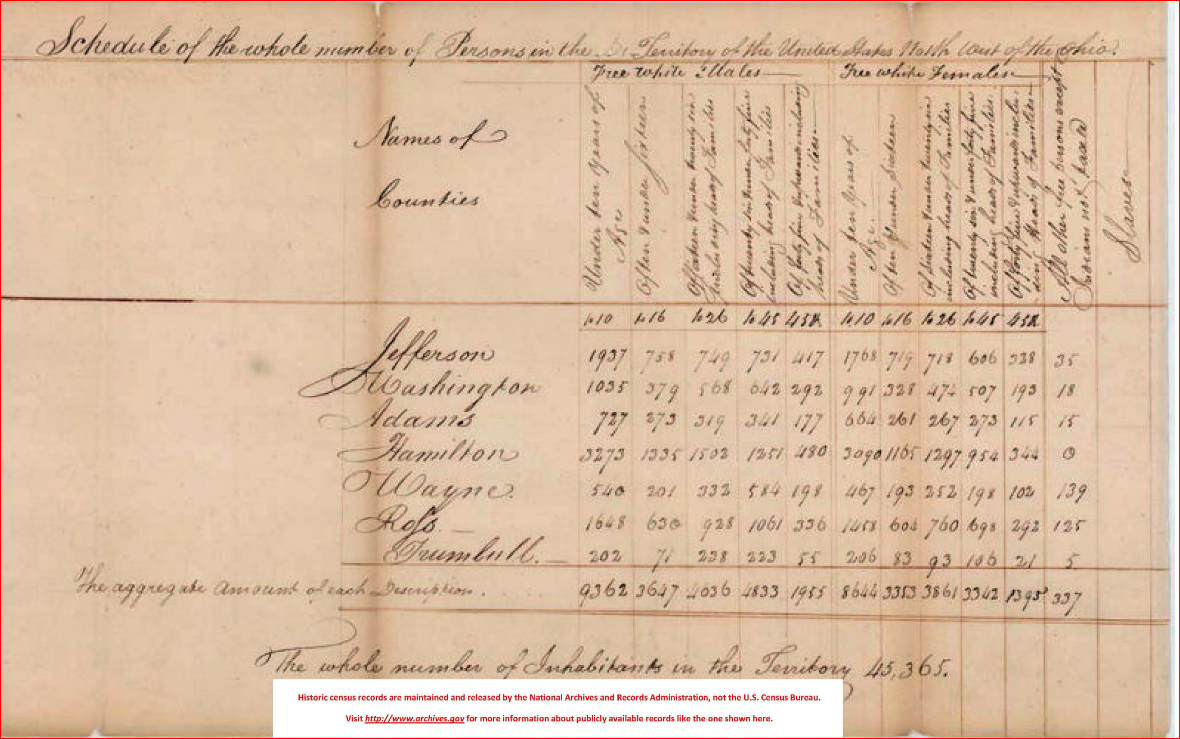 Schedule of the whole number of Persons in the Territory of the United States North West of the Ohio.
Free white Males Free white Females
Names of
Counties
Under ten years of Age
Of ten & under sixteen
Of sixteen & under twenty six including heads of Families
Of twenty six & under forty five including heads of Families
Of forty five & upwards including heads of Families
Under ten years of Age
Of ten & under sixteen
Of sixteen & under twenty six including heads of Families
Of twenty six & under forty five including heads of Families
Of forty five & upwards including heads of Families
All other free persons except Indians not taxed
Slaves
to 10 to 16 to 26 to 45 45 & to 10 to 16 to 26 to 45 45 &
Jefferson 1937 758 749 731 417 1768 719 718 606 338 35
Washington 1035 379 568 642 292 991 328 474 507 193 18
Adams 727 273 319 341 177 664 261 267 273 115 15
Hamilton 3273 1335 1502 1251 480 3090 1165 1297 954 344 0
Wayne. 540 201 332 584 198 467 193 252 198 102 139
Ross 1648 630 928 1061 336 1458 604 760 698 292 125
Trumbull. 202 71 238 223 55 206 83 93 106 21 5
The aggregate amount of each Description. 9362 3647 4636 4833 1955 8644 3353 3861 3342 1395 337
The whole number of Inhabitants in the Territory 45,365.
Historic census records are maintained and released by the National Archives and Records Administration, not the U.S. Census Bureau.
Visit http://www.archives.gov for more information about publicly available records like the one shown here.